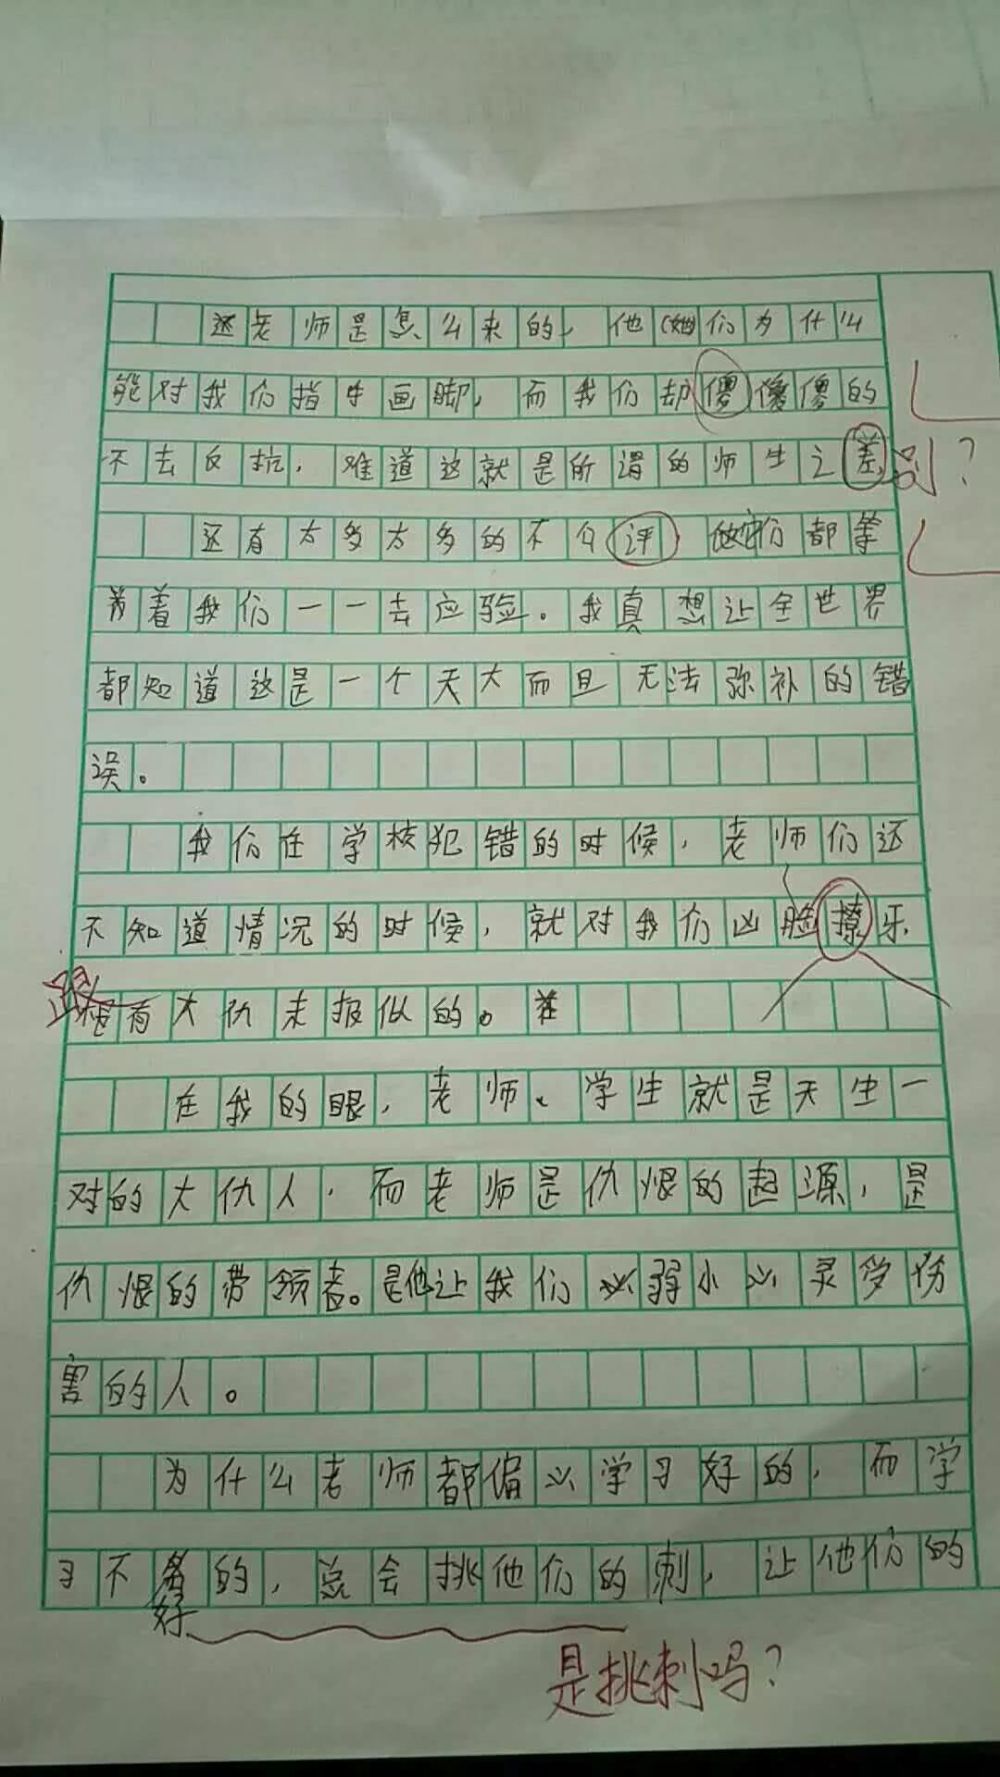 这老师是怎么来的，他(她)们为什么
能对我们指手画脚，而我们却傻傻傻的
不去反抗，难道这就是所谓的师生之差别？
还有太多太多的不公评 他她们都等
着我们一一去应验。我真想让全世界
都知道这是一个天大而且无法弥补的错
误。
我们在学校犯错的时候，老师们还
不知道情况的时候，就对我们凶脸撩牙
跟有大仇未报似的。
在我的眼，老师、学生就是天生一
对的大仇人，而老师是仇恨的起源，是
仇恨的带领者。是他让我们弱小心灵受伤
害的人。
为什么老师都偏心学习好的，而学
习不好的，总会挑他们的刺，让他们的
是挑刺吗？